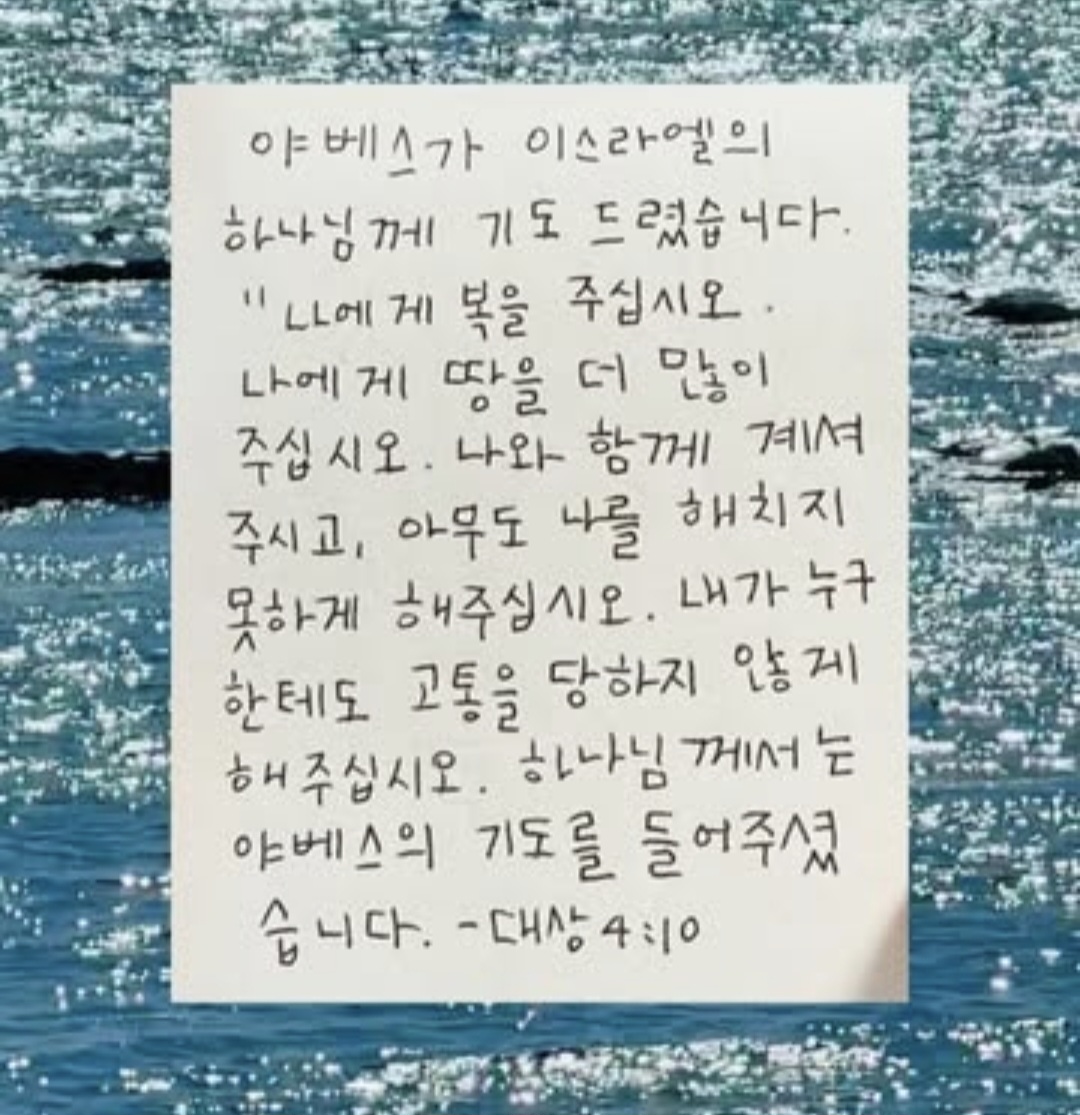 야베스가 이스라엘의
하나님께 기도 드렸습니다.
"나에게 복을 주십시오.
나에게 땅을 더 많이
주십시오. 나와 함께 계셔
주시고, 아무도 나를 해치지
못하게 해주십시오. 내가 누구
한테도 고통을 당하지 않게
해주십시오. 하나님께서는
야베스의 기도를 들어주셨
습니다. -대상4:10